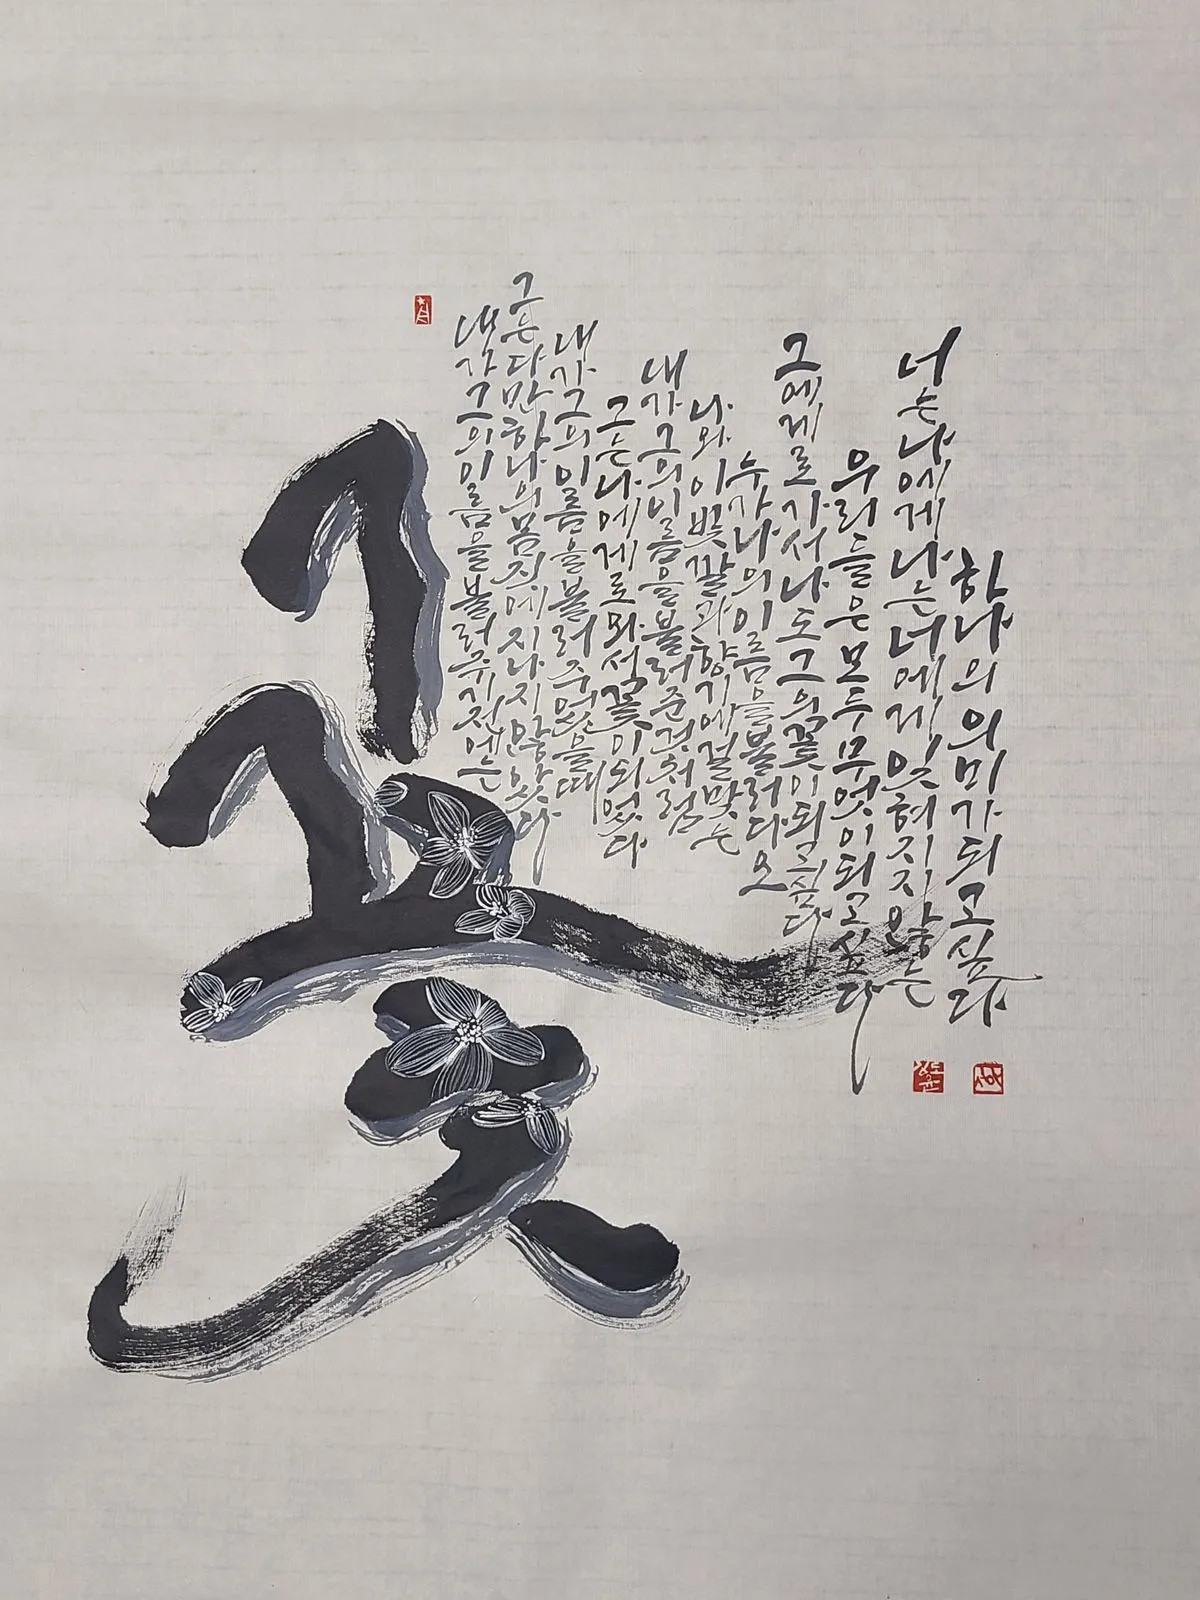 꽃
내가그의이름을불러주기전에는
그는다만하나의몸짓에지나지않았다
내가그의이름을불러주었을때
그는나에게로와서꽃이되었다
내가그의이름을불러준것처럼
나의이빛깔과향기에걸맞는
누가나의이름을불러다오
그에게로가서나도그의꽃이되고싶다
우리들은모두무엇이되고싶다
너는나에게나는너에게잊혀지지않는
하나의의미가되고싶다